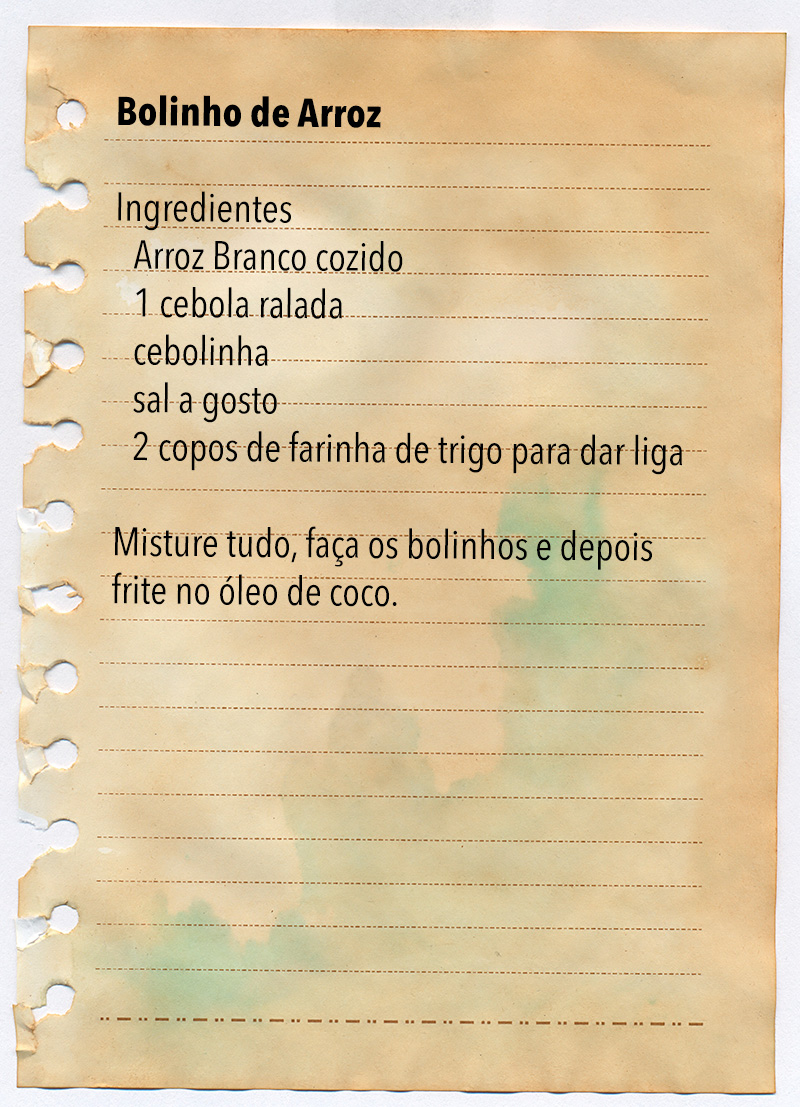 Bolinho de Arroz
Ingredientes
Arroz Branco cozido
1 cebola ralada
cebolinha
sal a gosto
2 copos de farinha de trigo para dar liga
Misture tudo, faça os bolinhos e depois
frite no óleo de coco.